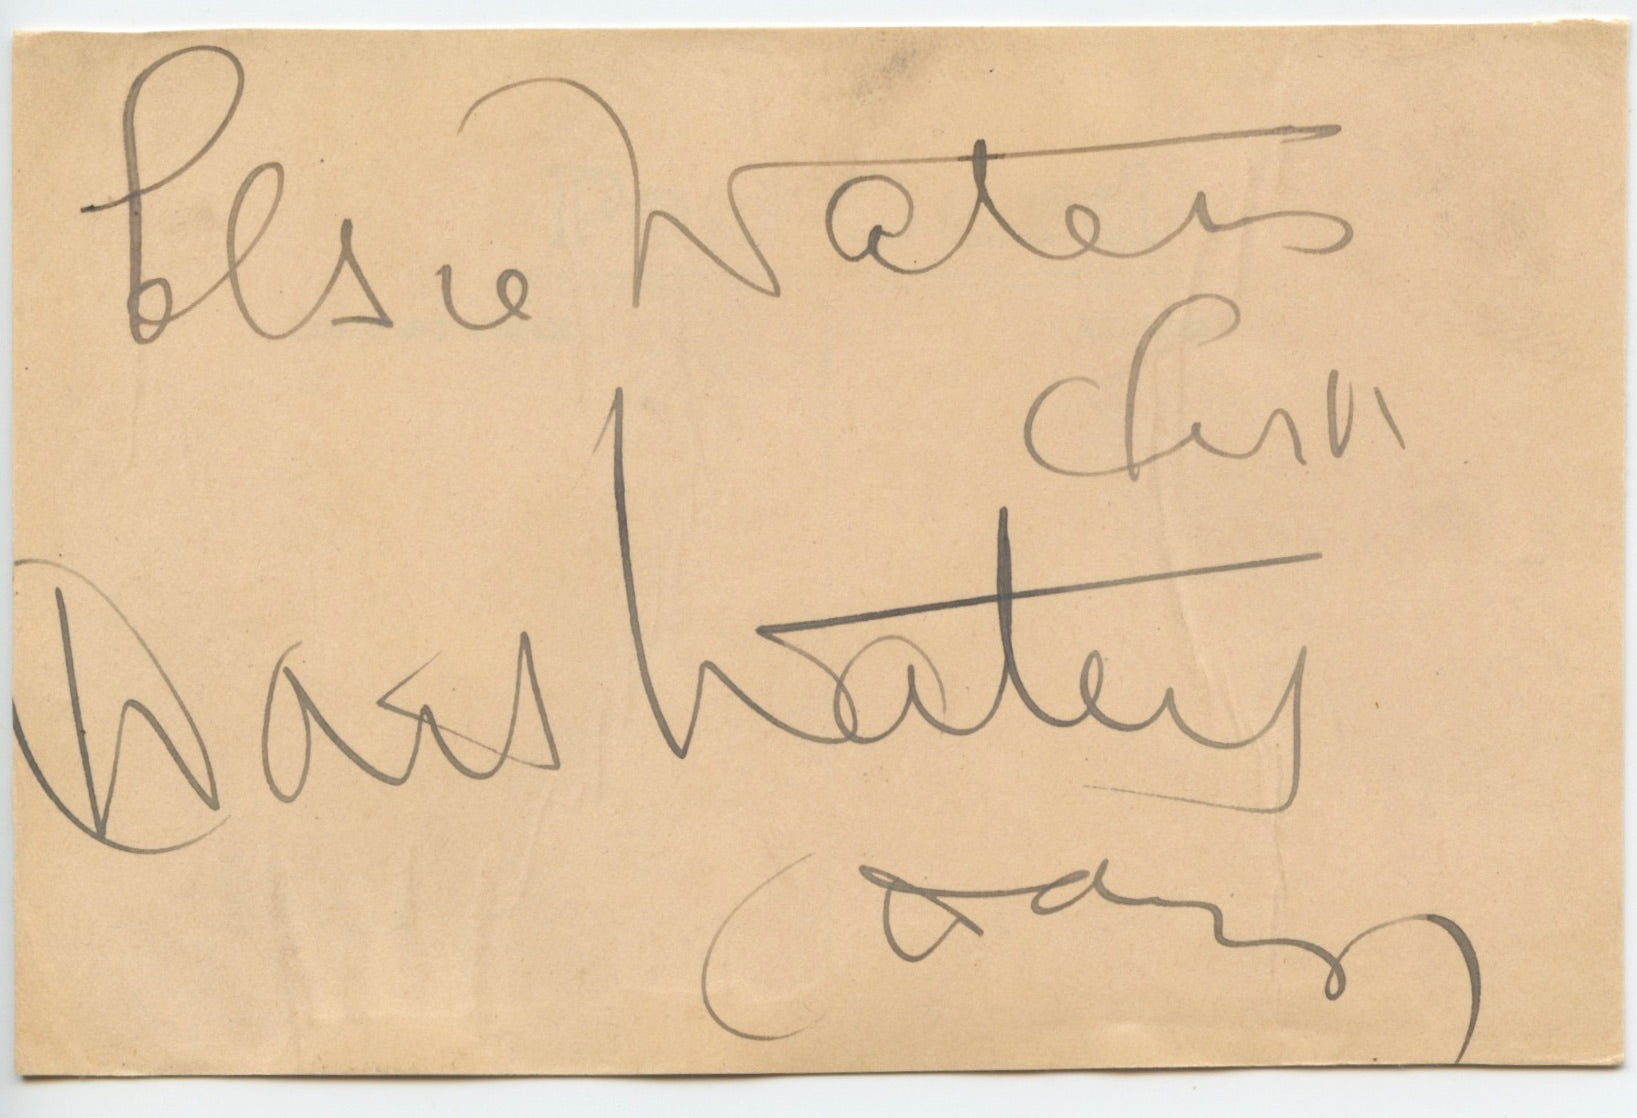 Elsie Waters
"Gert"
Doris Waters
(Daisy)